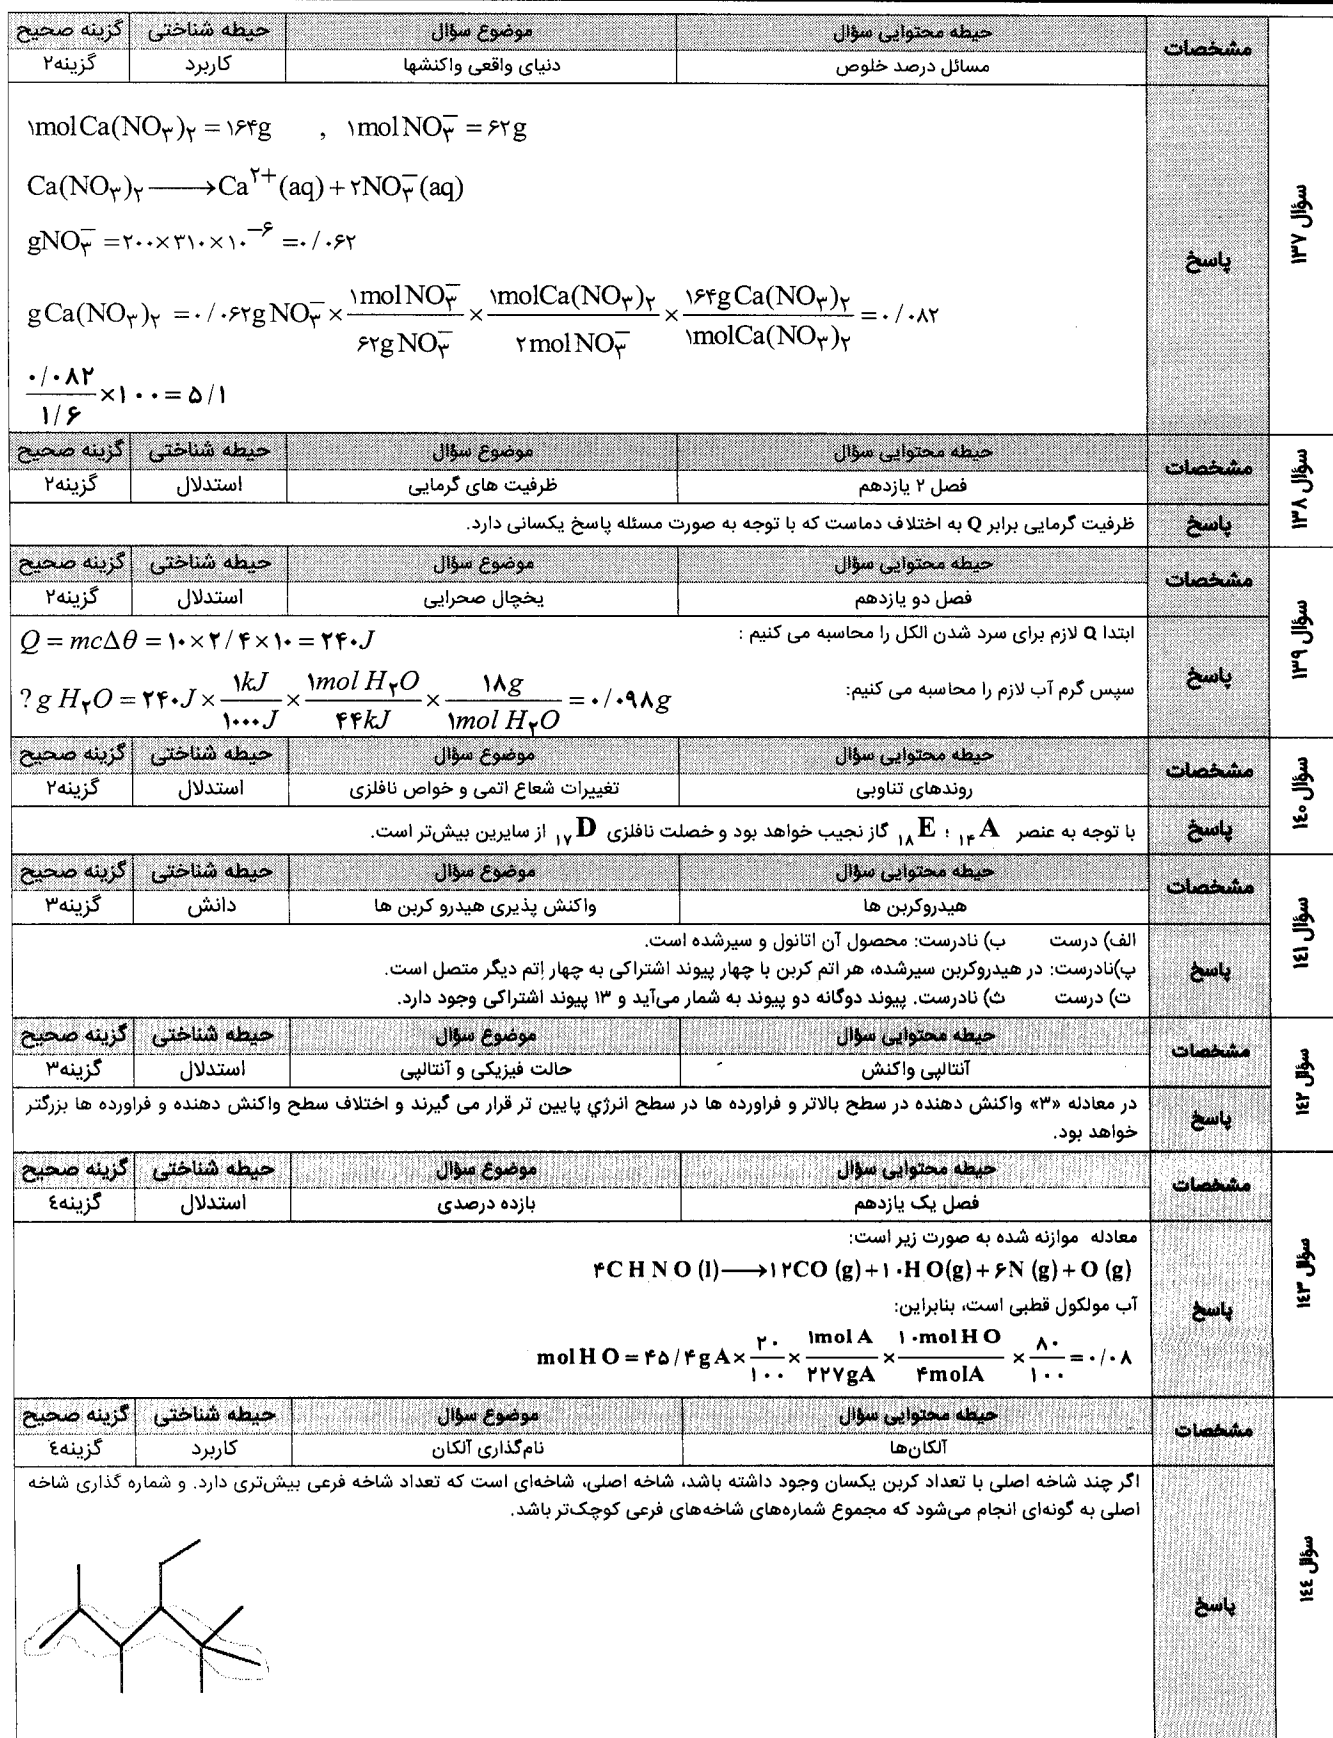 مشخصات حیطه محتوایی سؤال موضوع سؤال حیطه شناختی گزینه صحیح
مسائل درصد خلوص دنیای واقعی واکنشها کاربرد گزینه۲
سؤال ۱۳۷
پاسخ
۱mol Ca(NO₃)₂ = ۱۶۴g , ۱mol NO₃⁻ = ۶۲g
Ca(NO₃)₂ ⟶ Ca²⁺(aq) + ۲NO₃⁻(aq)
gNO₃⁻ = ۲۰۰×۳۱۰×۱۰⁻⁶ = ۰/۰۶۲
g Ca(NO₃)₂ = ۰/۰۶۲g NO₃⁻ × ۱mol NO₃⁻ / ۶۲g NO₃⁻ × ۱mol Ca(NO₃)₂ / ۲mol NO₃⁻ × ۱۶۴g Ca(NO₃)₂ / ۱mol Ca(NO₃)₂ = ۰/۰۸۲
۰/۰۸۲ / ۱/۶ ×۱۰۰ = ۵/۱
سؤال ۱۳۸
مشخصات حیطه محتوایی سؤال موضوع سؤال حیطه شناختی گزینه صحیح
فصل ۲ یازدهم ظرفیت های گرمایی استدلال گزینه۲
پاسخ ظرفیت گرمایی برابر Q به اختلاف دماست که با توجه به صورت مسئله پاسخ یکسانی دارد.
سؤال ۱۳۹
مشخصات حیطه محتوایی سؤال موضوع سؤال حیطه شناختی گزینه صحیح
فصل دو یازدهم یخچال صحرایی استدلال گزینه۲
پاسخ
ابتدا Q لازم برای سرد شدن الکل را محاسبه می کنیم : Q = mcΔθ = ۱۰×۲/۴×۱۰ = ۲۴۰J
سپس گرم آب لازم را محاسبه می کنیم: ? g H₂O = ۲۴۰J × ۱kJ / ۱۰۰۰J × ۱mol H₂O / ۴۴kJ × ۱۸g / ۱mol H₂O = ۰/۰۹۸g
سؤال ۱۴۰
مشخصات حیطه محتوایی سؤال موضوع سؤال حیطه شناختی گزینه صحیح
روندهای تناوبی تغییرات شعاع اتمی و خواص نافلزی استدلال گزینه۲
پاسخ با توجه به عنصر ₁₄A ؛ ₁₈E گاز نجیب خواهد بود و خصلت نافلزی ₁₇D از سایرین بیش‌تر است.
سؤال ۱۴۱
مشخصات حیطه محتوایی سؤال موضوع سؤال حیطه شناختی گزینه صحیح
هیدروکربن ها واکنش پذیری هیدرو کربن ها دانش گزینه۳
پاسخ
الف) درست ب) نادرست: محصول آن اتانول و سیرشده است.
پ)نادرست: در هیدروکربن سیرشده، هر اتم کربن با چهار پیوند اشتراکی به چهار اتم دیگر متصل است.
ت) درست ث) نادرست. پیوند دوگانه دو پیوند به شمار می‌آید و ۱۳ پیوند اشتراکی وجود دارد.
سؤال ۱۴۲
مشخصات حیطه محتوایی سؤال موضوع سؤال حیطه شناختی گزینه صحیح
آنتالپی واکنش حالت فیزیکی و آنتالپی استدلال گزینه۳
پاسخ
در معادله «۳» واکنش دهنده در سطح بالاتر و فراورده ها در سطح انرژي پایین تر قرار می گیرند و اختلاف سطح واکنش دهنده و فراورده ها بزرگتر
خواهد بود.
سؤال ۱۴۳
مشخصات حیطه محتوایی سؤال موضوع سؤال حیطه شناختی گزینه صحیح
فصل یک یازدهم بازده درصدی استدلال گزینه٤
پاسخ
معادله موازنه شده به صورت زیر است:
۴C H N O (l) ⟶ ۱۲CO (g)+۱۰H O(g)+۶N (g)+O (g)
آب مولکول قطبی است، بنابراین:
mol H O = ۴۵/۴g A × ۲۰ / ۱۰۰ × ۱mol A / ۲۲۷gA × ۱۰mol H O / ۴molA × ۸۰ / ۱۰۰ = ۰/۰۸
سؤال ۱۴٤
مشخصات حیطه محتوایی سؤال موضوع سؤال حیطه شناختی گزینه صحیح
آلکان‌ها نام‌گذاری آلکان کاربرد گزینه٤
پاسخ
اگر چند شاخه اصلی با تعداد کربن یکسان وجود داشته باشد، شاخه اصلی، شاخه‌ای است که تعداد شاخه فرعی بیش‌تری دارد. و شماره گذاری شاخه
اصلی به گونه‌ای انجام می‌شود که مجموع شماره‌های شاخه‌های فرعی کوچک‌تر باشد.